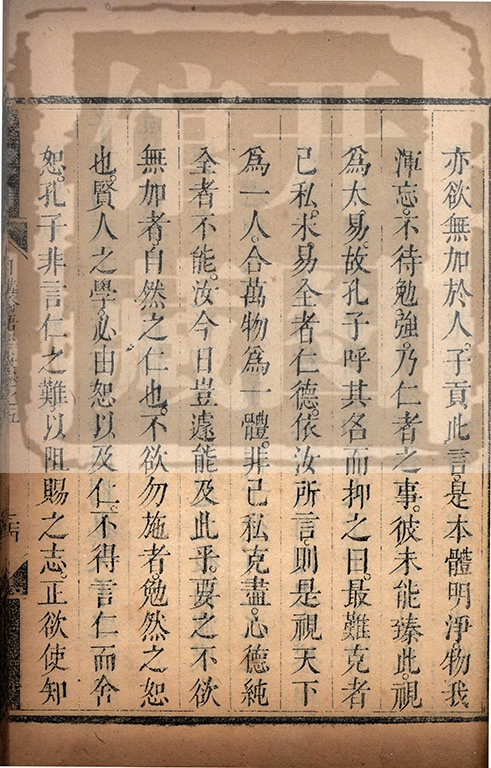 亦欲無加於人。子貢此言。是本體明淨。物我
渾忘。不待勉強。乃仁者之事。彼未能臻此。視
爲太易。故孔子呼其名而抑之曰。最難克者
己私。未易全者仁德。依汝所言。則是視天下
爲一人。合萬物爲一體。非己私克盡。心德純
全者不能。汝今日豈遽能及此乎。要之不欲
無加者。自然之仁也。不欲勿施者。勉然之恕
也。賢人之學。必由恕以及仁。不得言仁而舍
恕。孔子非言仁之難。以阻賜之志。正欲使知